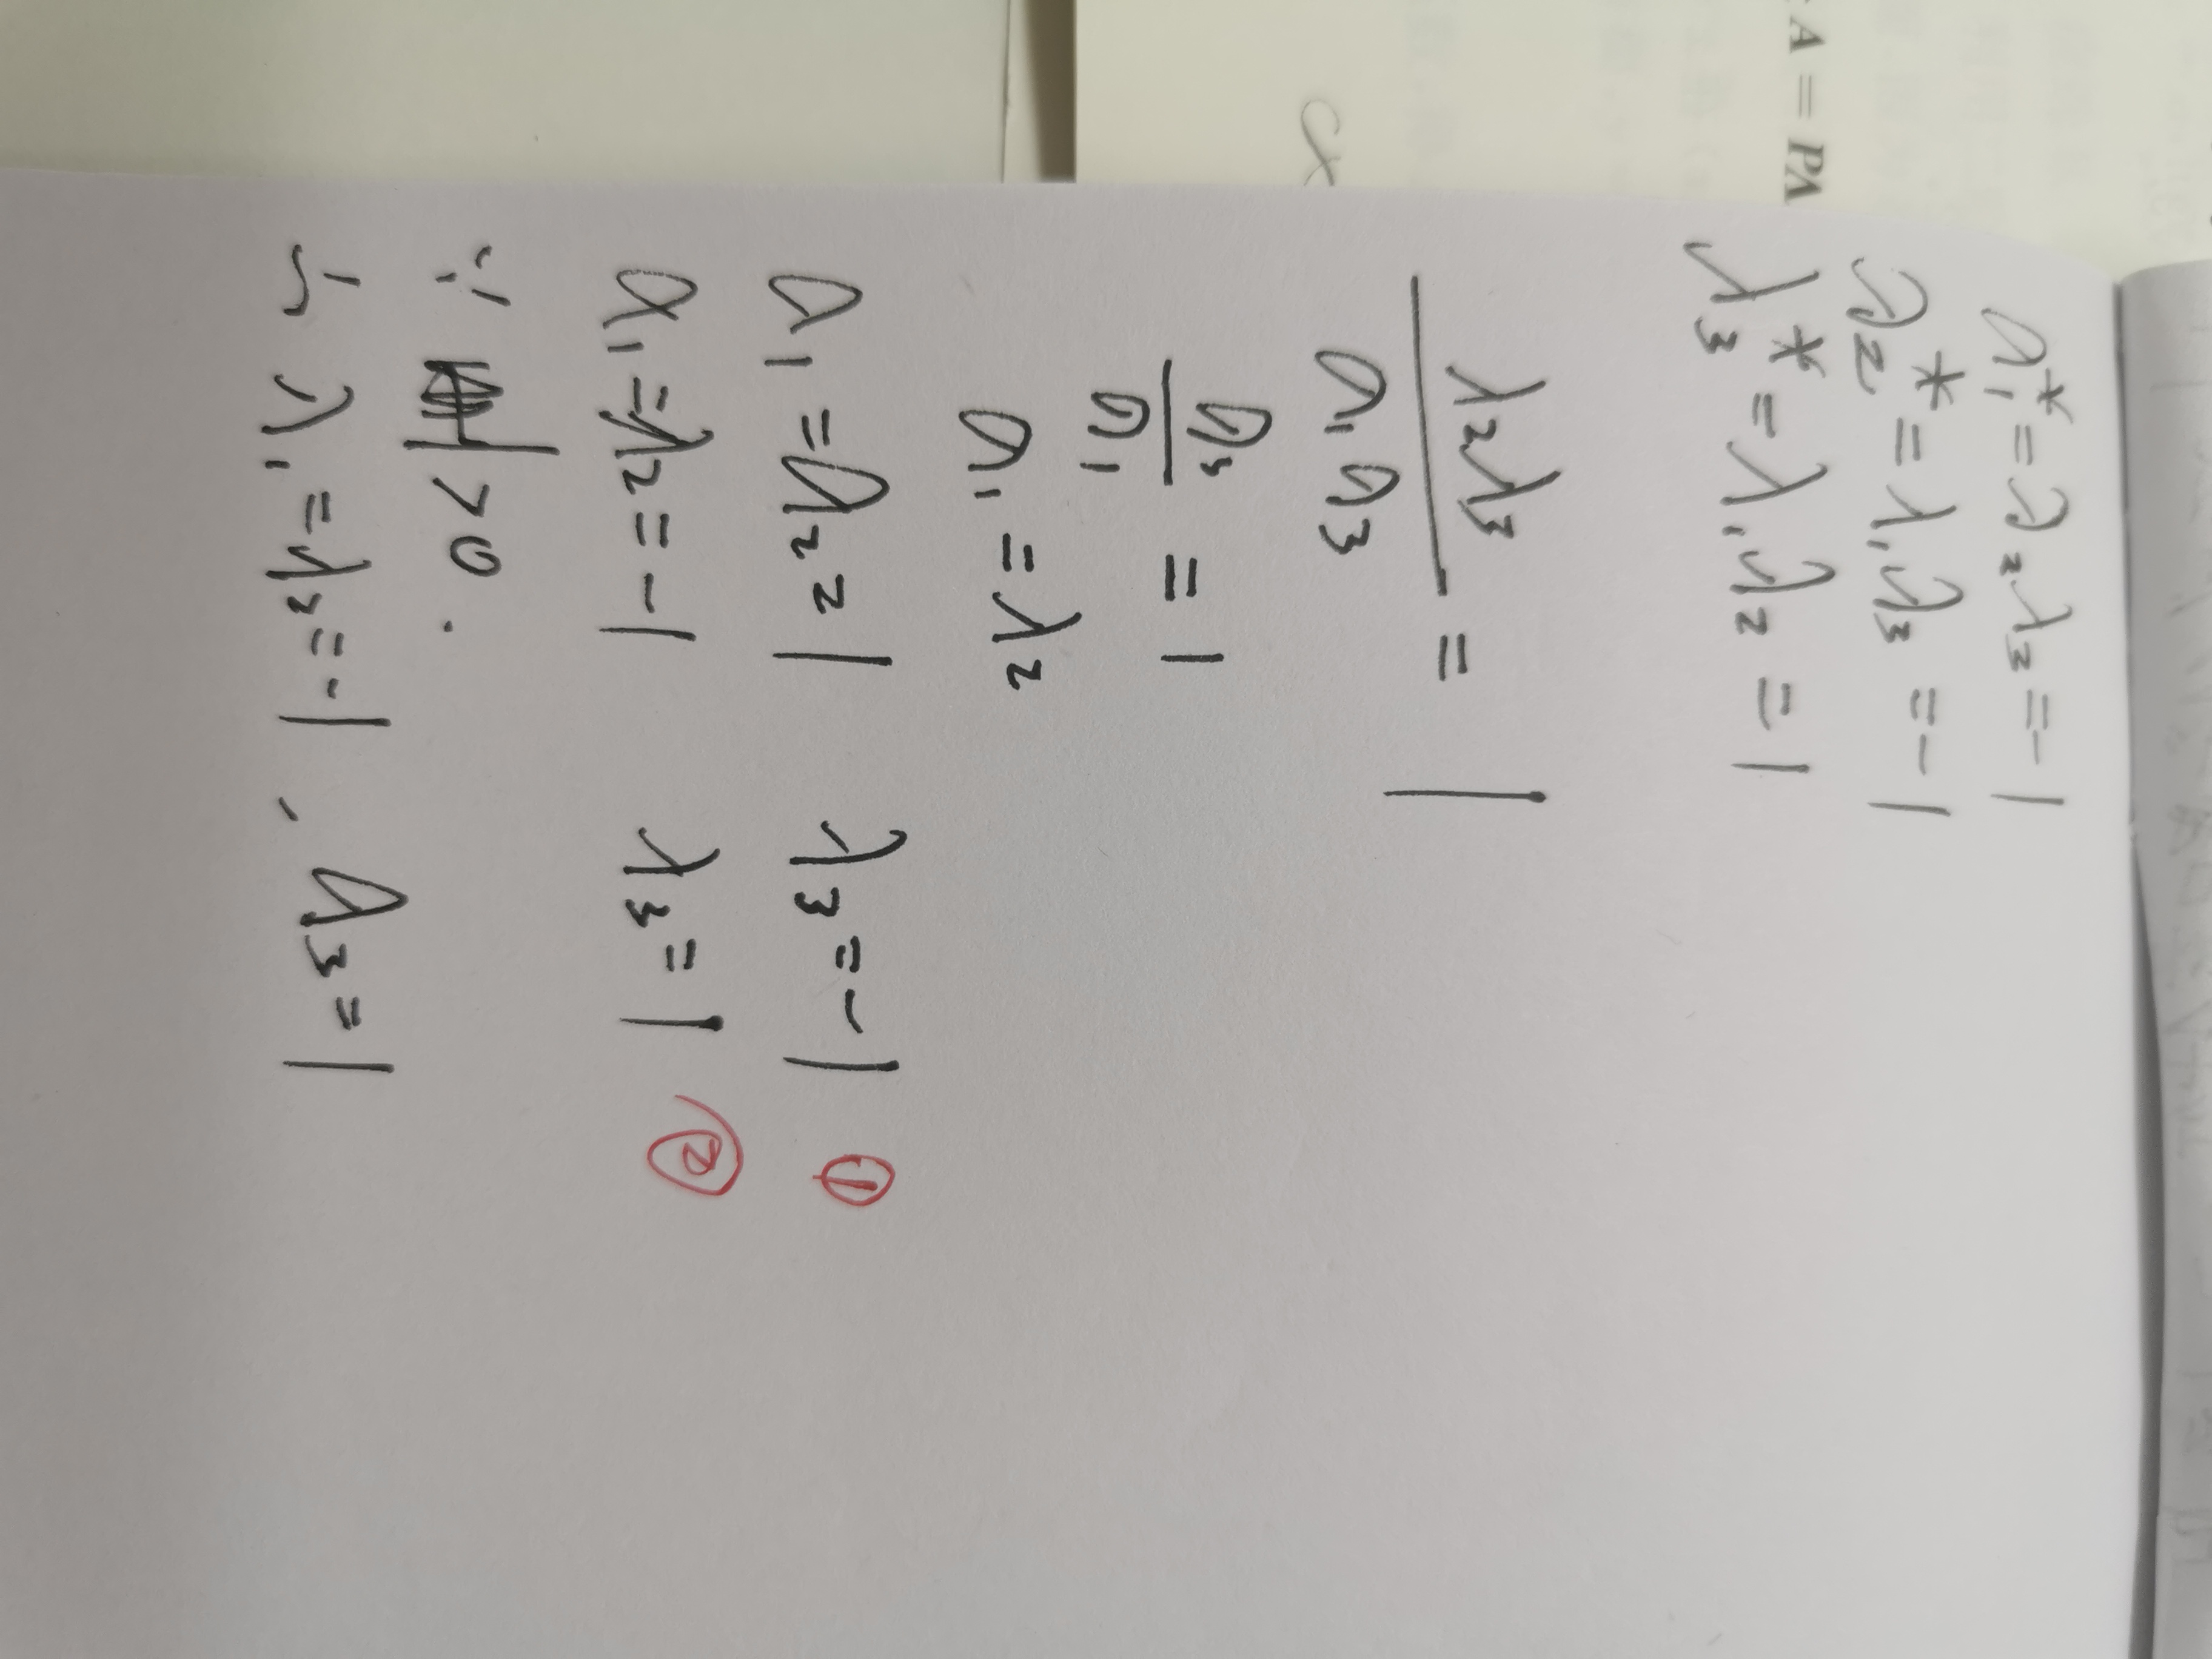 A = PΛ
α
λ₁* = λ₂λ₃ = -1
λ₂* = λ₁λ₃ = -1
λ₃* = λ₁λ₂ = 1
λ₂λ₃ / λ₁λ₃ = 1
λ₂ / λ₁ = 1
λ₁ = λ₂
λ₁ = λ₂ = 1 λ₃ = -1 ①
λ₁ = λ₂ = -1 λ₃ = 1 ②
∵ > 0 .
∴ λ₁ = λ₂ = -1 , λ₃ = 1